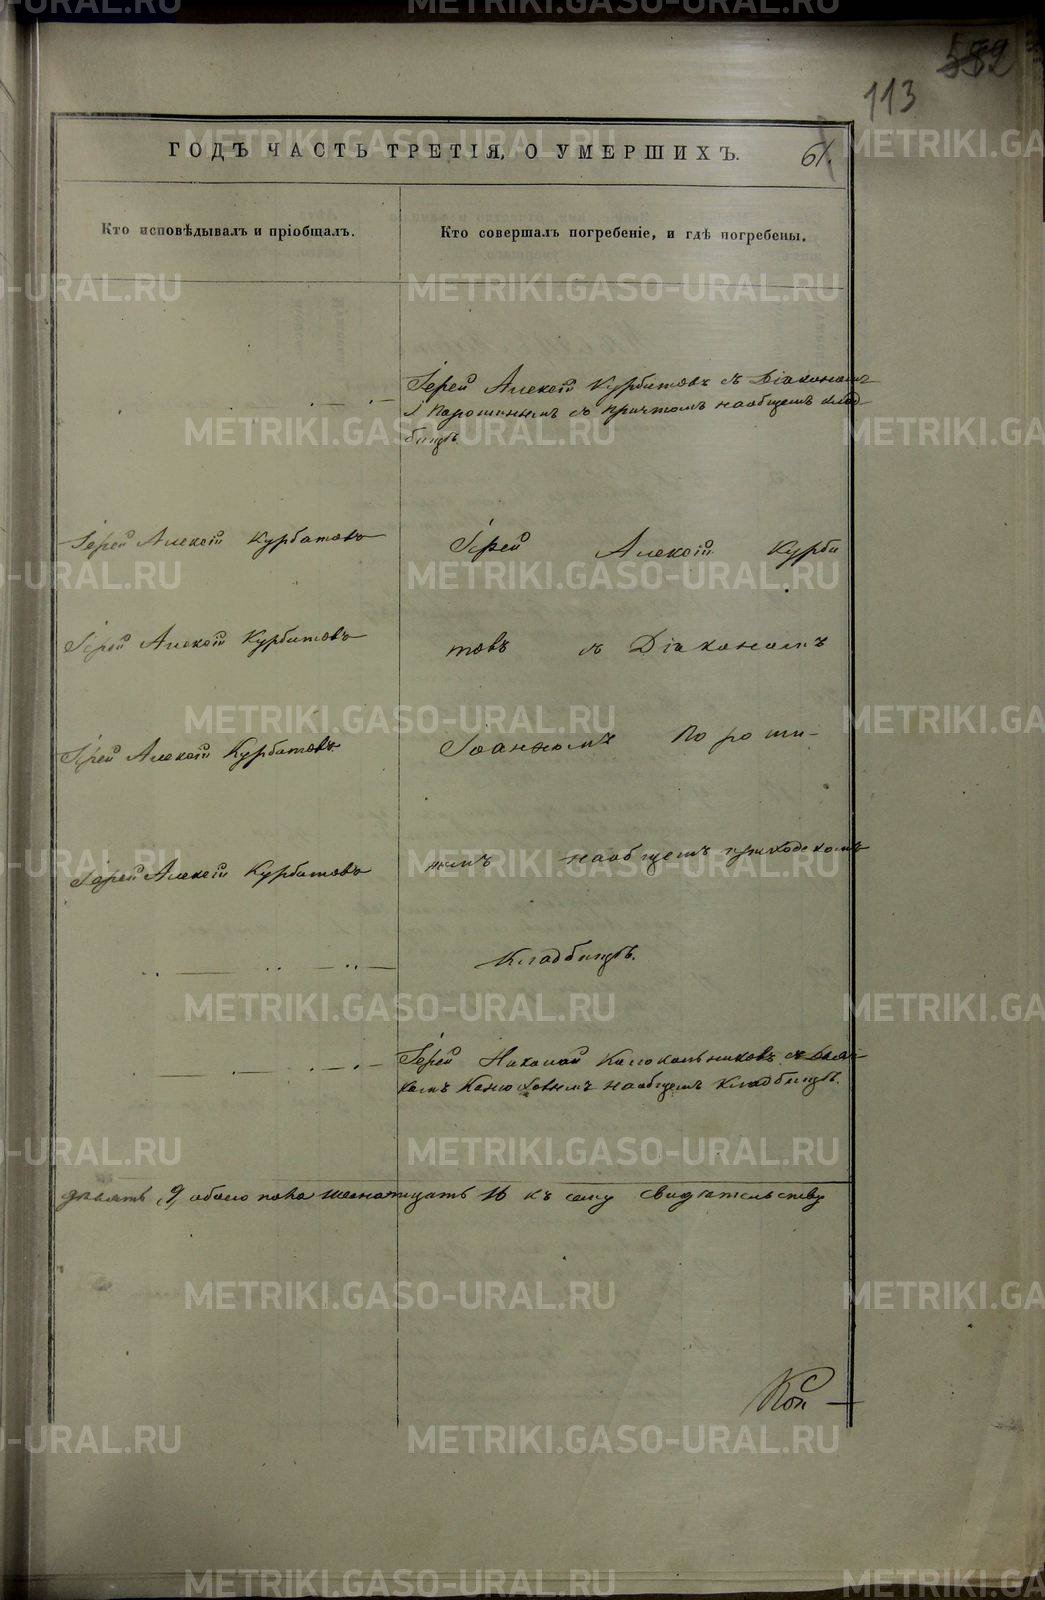 582
113
ГОДЪ ЧАСТЬ ТРЕТІЯ, О УМЕРШИХЪ.
61.
Кто исповѣдывалъ и пріобщалъ.
Кто совершалъ погребеніе, и гдѣ погребены.
Іерей Алексій Курбатовъ съ Діакономъ
І Порошинымъ съ причтомъ наобщемъ клад-
бищѣ
Іерей Алексій Курбатовъ
Іерей Алексій Курба
Іерей Алексій Курбатовъ
товъ съ Діакономъ
Іерей Алексій Курбатовъ
Іоанномъ Пороши-
Іерей Алексій Курбатовъ
нымъ наобщемъ приходскомъ
Кладбищѣ.
Іерей Николай Колокольниковъ
наобщемъ Кладбищѣ.
девять, 9, обоего пола шеснатцать 16 къ сему свидѣтельству
METRIKI.GASO-URAL.RU